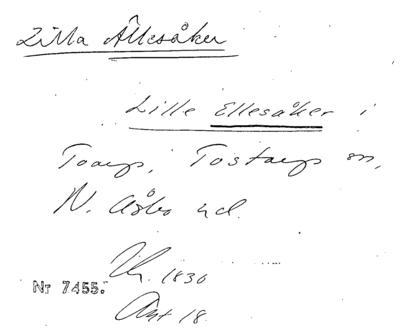 Lilla Ällesåker
Lille Ellesåker i
Toarp, Tostarp sn,
N. Åsbo hd.
1830
Nr 7455.
Akt 18.